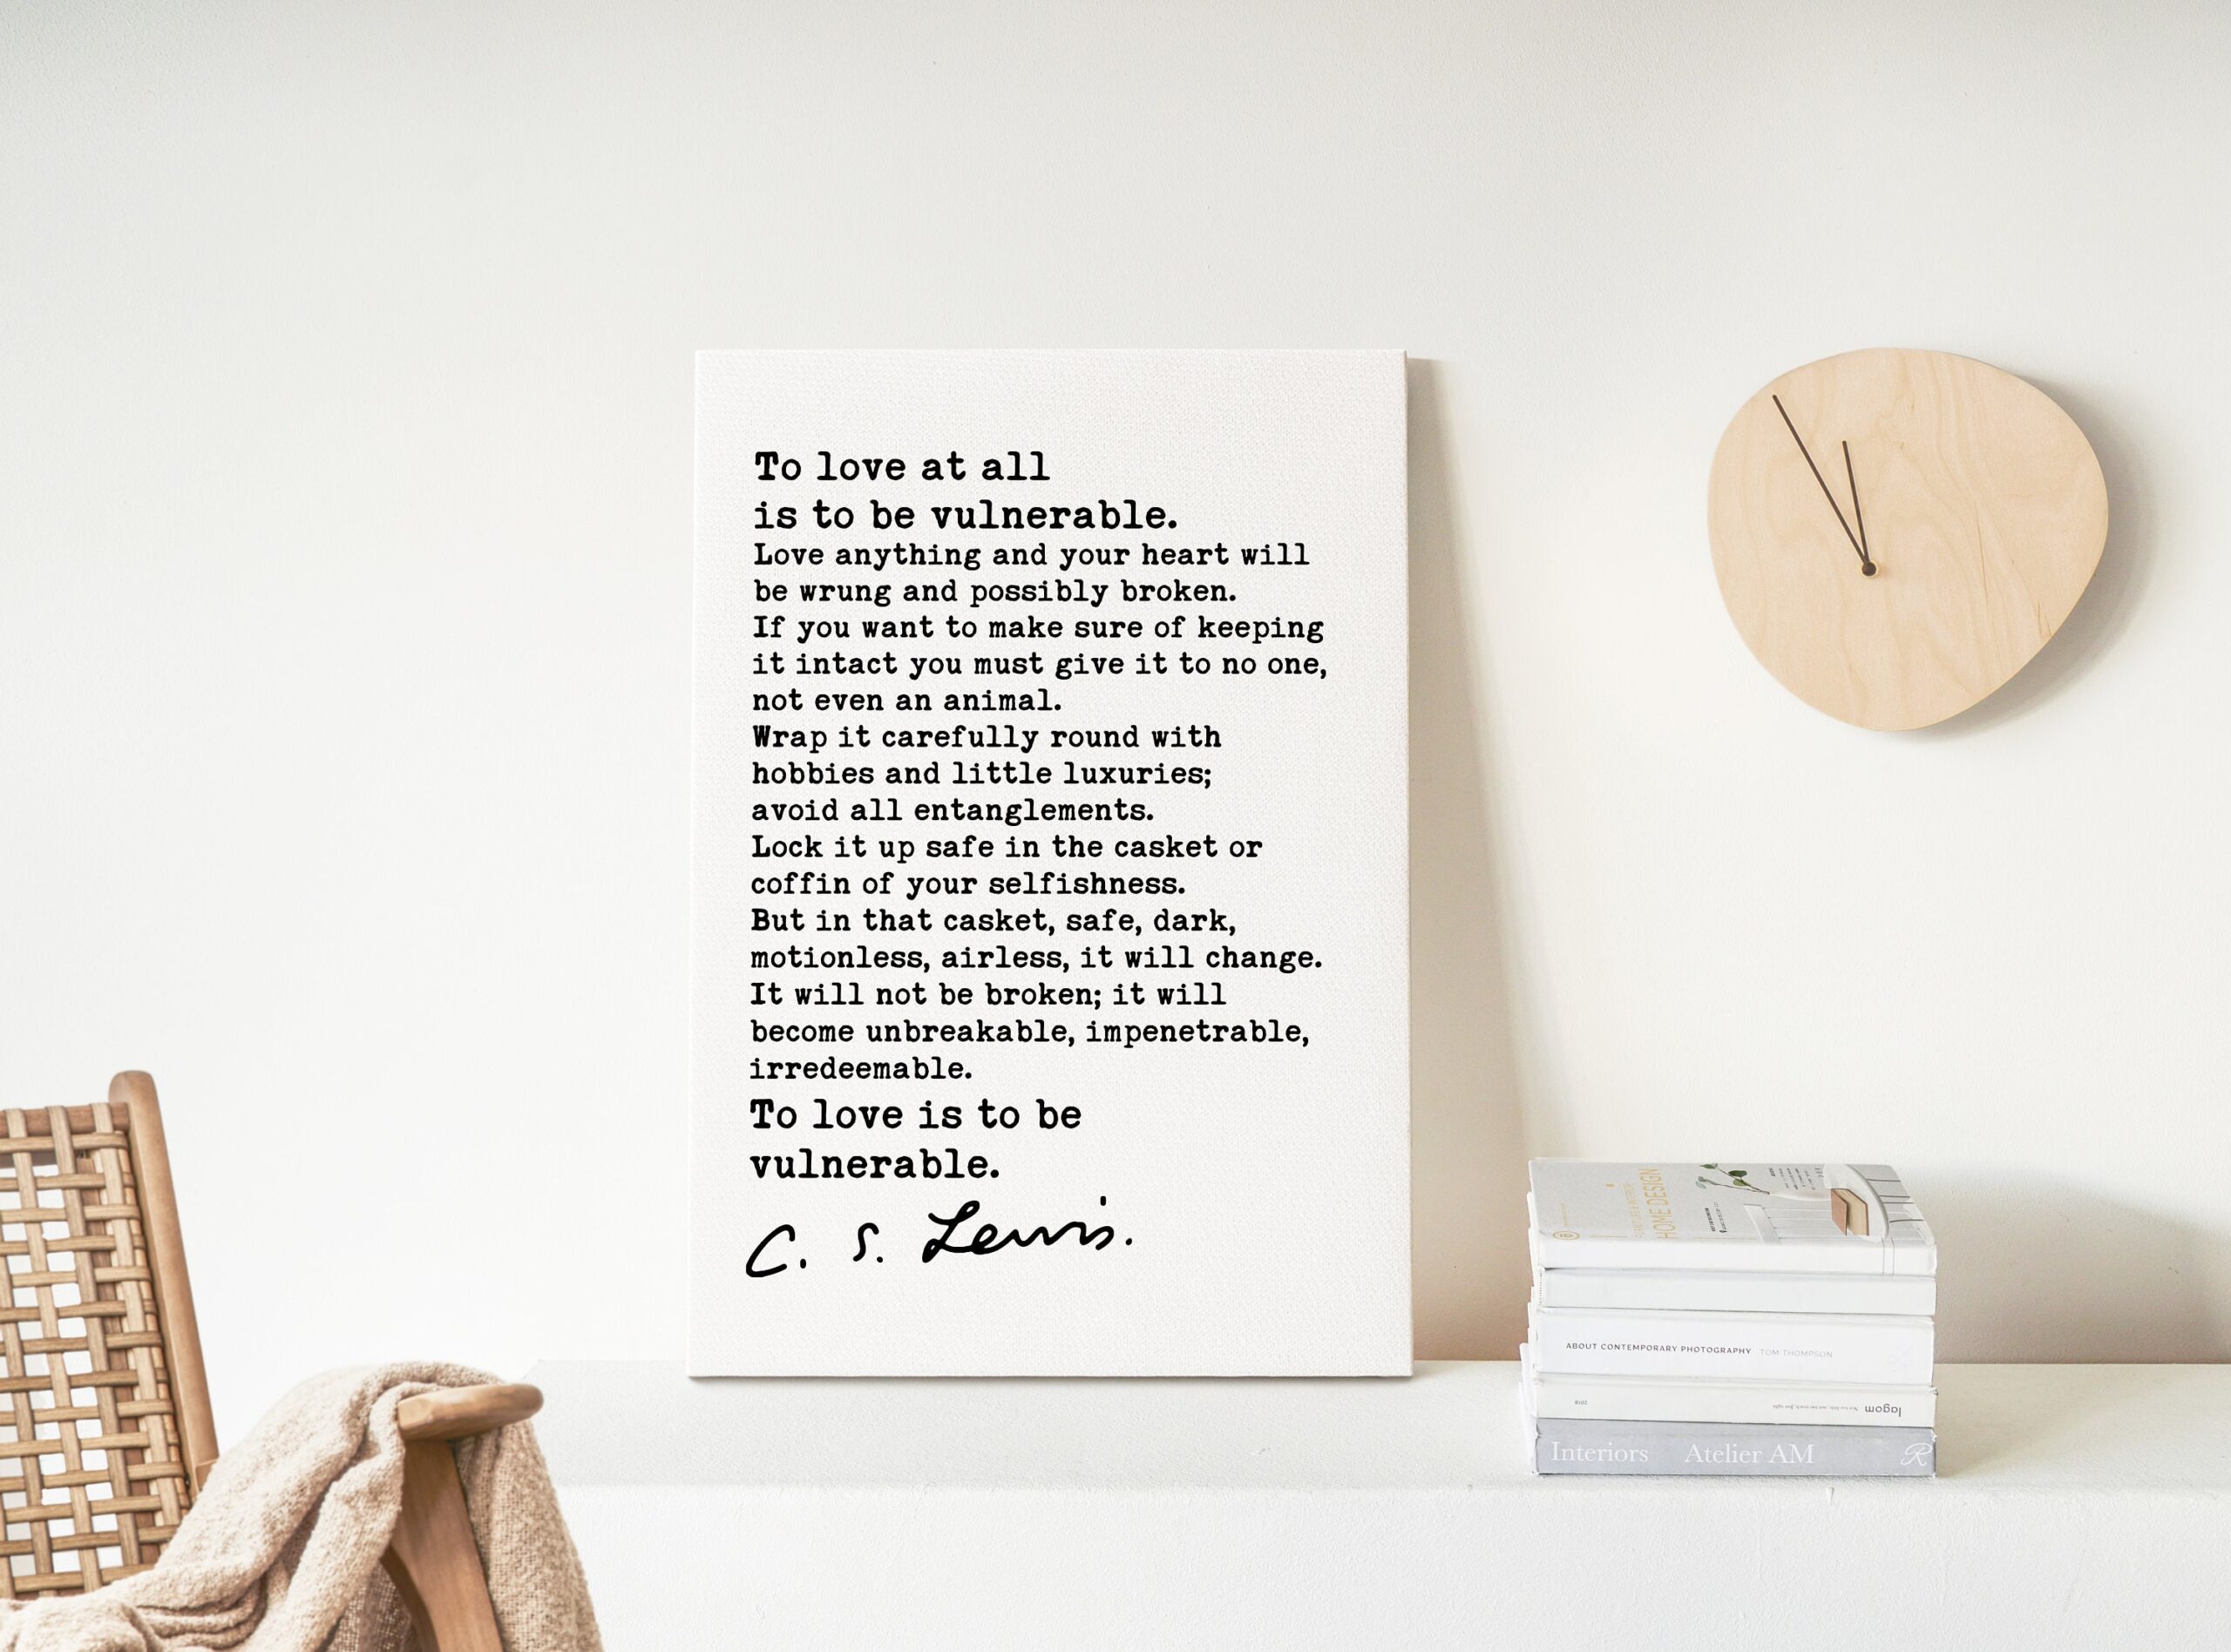 To love at all
is to be vulnerable.
Love anything and your heart will
be wrung and possibly broken.
If you want to make sure of keeping
it intact you must give it to no one,
not even an animal.
Wrap it carefully round with
hobbies and little luxuries;
avoid all entanglements.
Lock it up safe in the casket or
coffin of your selfishness.
But in that casket, safe, dark,
motionless, airless, it will change.
It will not be broken; it will
become unbreakable, impenetrable,
irredeemable.
To love is to be
vulnerable.
C. S. Lewis.
HOME DESIGN
ABOUT CONTEMPORARY PHOTOGRAPHY TOM THOMPSON
lagom
2018
Interiors Atelier AM R